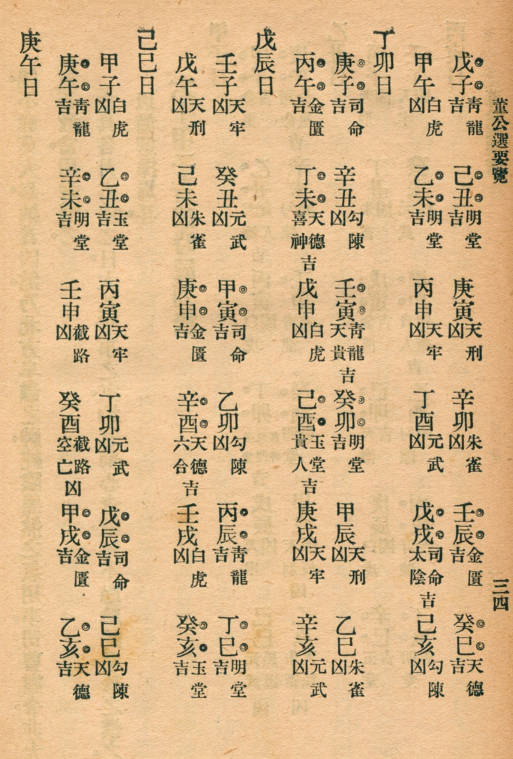 董公選要覽
三四
戊子青龍吉 己丑明堂吉 庚寅天刑凶 辛卯朱雀凶 壬辰金匱吉 癸巳天德吉
甲午白虎凶 乙未明堂吉 丙申天牢凶 丁酉元武凶 戊戌司命太陰吉 己亥勾陳凶
丁卯日
庚子司命吉 辛丑勾陳凶 壬寅青龍天貴吉 癸卯明堂吉 甲辰天刑凶 乙巳朱雀凶
丙午金匱吉 丁未天德喜神吉 戊申白虎凶 己酉玉堂貴人吉 庚戌天牢凶 辛亥元武凶
戊辰日
壬子天牢凶 癸丑元武凶 甲寅司命吉 乙卯勾陳凶 丙辰青龍吉 丁巳明堂吉
戊午天刑凶 己未朱雀凶 庚申金匱吉 辛酉天德六合吉 壬戌白虎凶 癸亥玉堂吉
己巳日
甲子白虎凶 乙丑玉堂吉 丙寅天牢凶 丁卯元武凶 戊辰司命吉 己巳勾陳凶
庚午青龍吉 辛未明堂吉 壬申截路凶 癸酉截路空亡凶 甲戌金匱吉 乙亥天德吉
庚午日